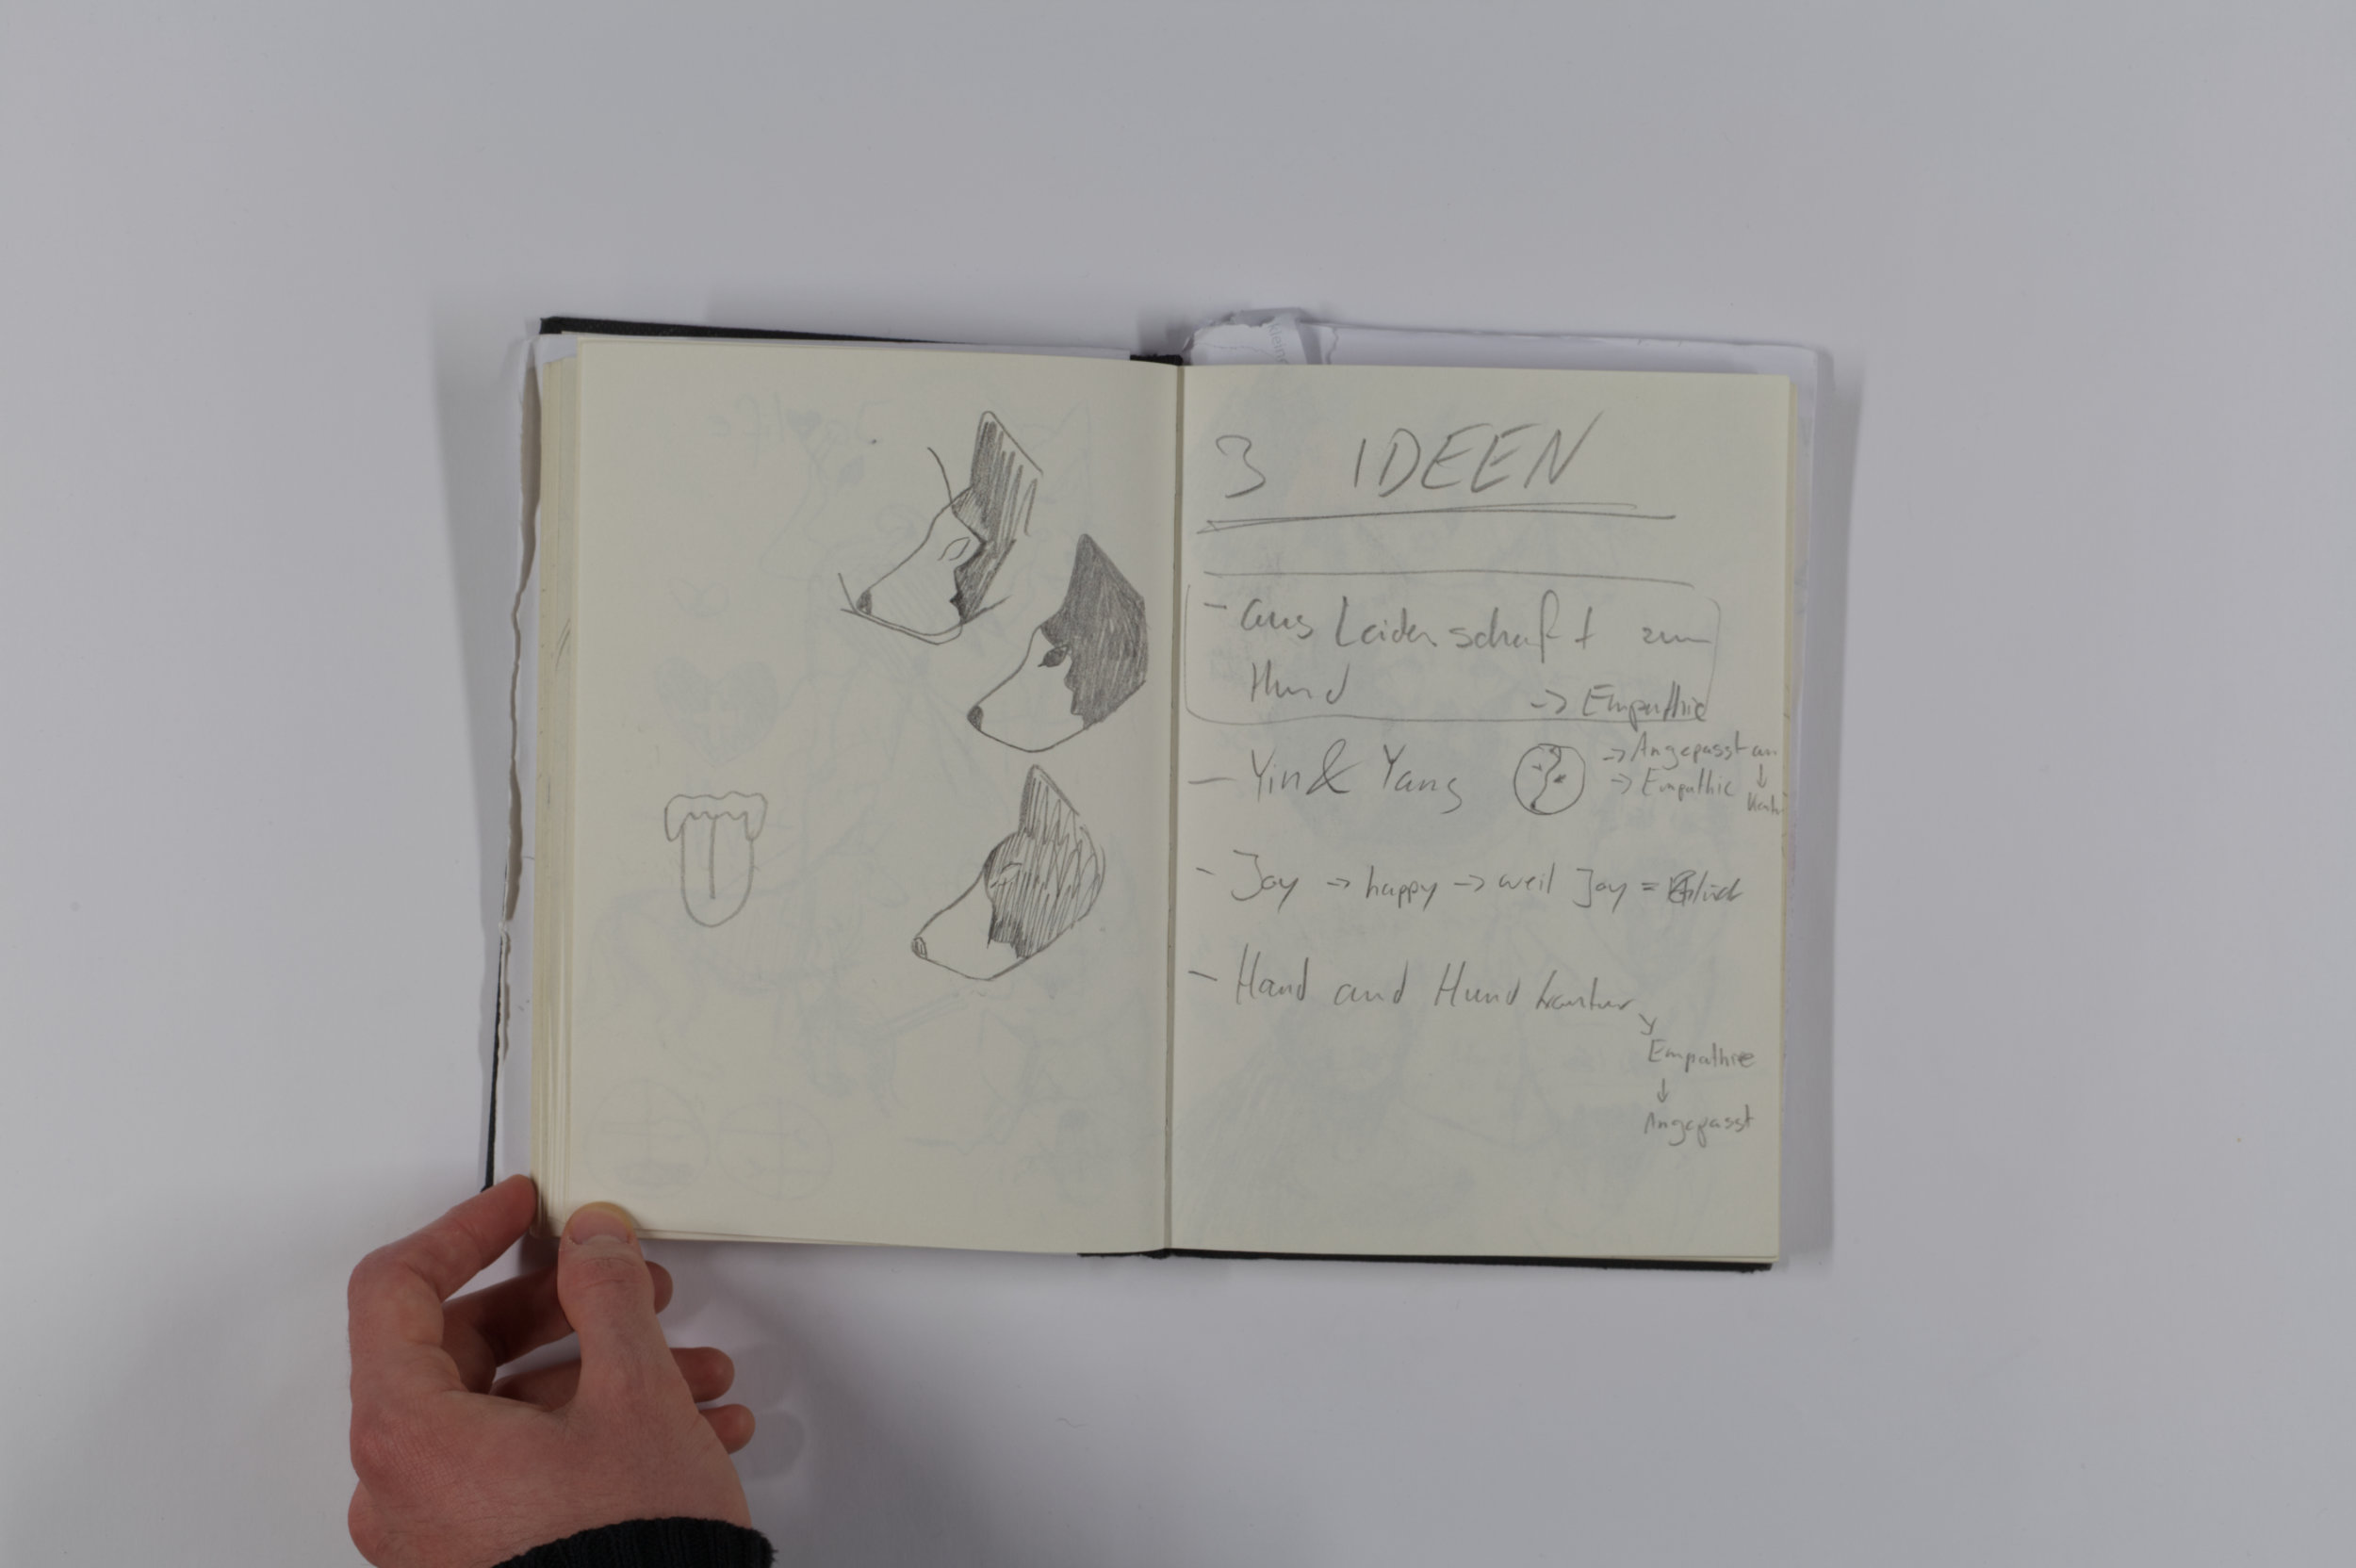 3 IDEEN
- aus Leidenschaft zum
Hund -> Empathie
- Yin & Yang -> Angepasst an
-> Empathie
- Joy -> happy -> weil Joy = Glück
- Hand and Hund
Empathie
Angepasst